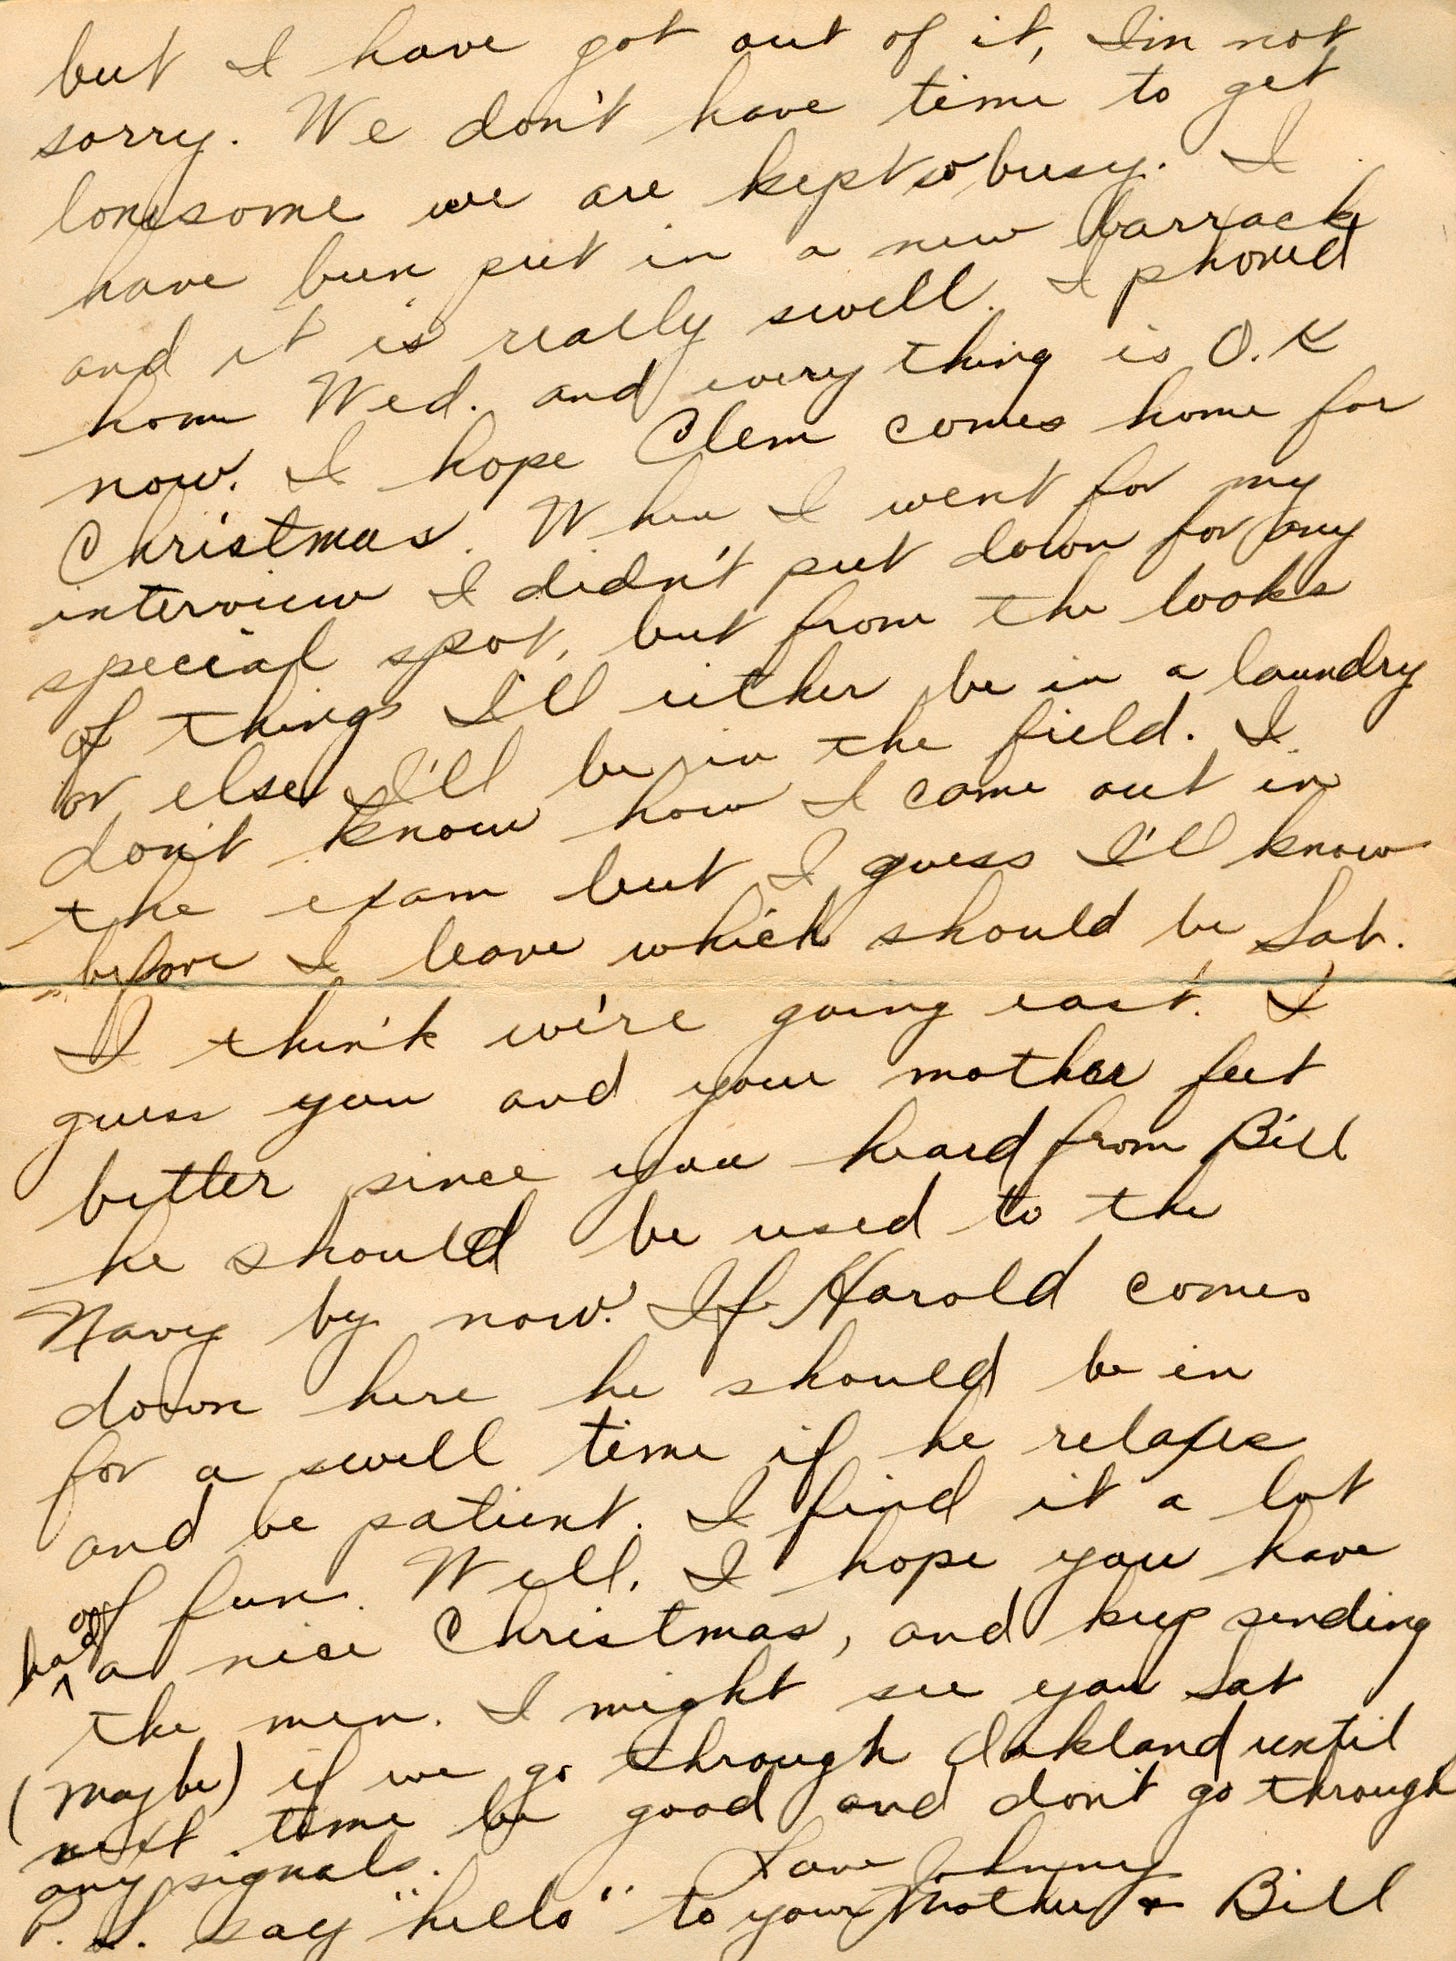 but I have got out of it, I'm not
sorry. We don't have time to get
lonesome we are kept so busy. I
have been put in a new barrack
and it is really swell. I phoned
home Wed. and every thing is O.K
now. I hope Clem comes home for
Christmas. When I went for my
interview I didn't put down for any
special spot, but from the looks
of things I'll either be in a laundry
or else I'll be in the field. I
don't know how I came out in
the exam but I guess I'll know
before I leave which should be Sat.
I think we're going east. I
guess you and your mother feet
better since you heard from Bill
he should be used to the
Navy by now. If Harold comes
down here he should be in
for a swell time if he relaxes
and be patient. I find it a lot
of fun. Well, I hope you have
had a nice Christmas, and keep sending
the men. I might see you Sat
(maybe) if we go through Oakland until
next time be good and don't go through
any signals.
Love Johnny
P.S. say "hello" to your Mother & Bill